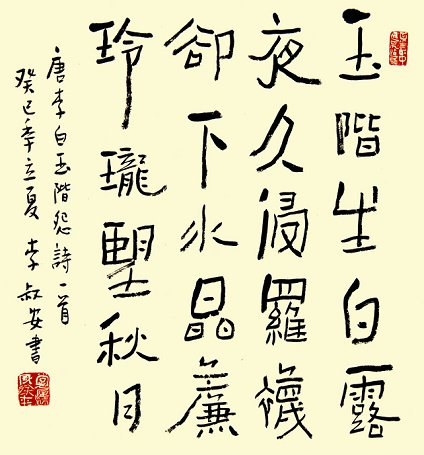 玉階生白露
夜久侵羅襪
卻下水晶簾
玲瓏朢秋月
唐李白玉階怨詩一首
癸巳年立夏 李叔安書